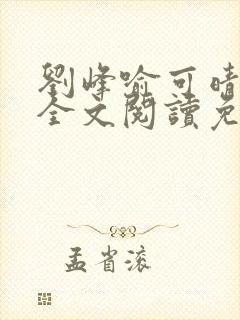 劉峰喻可晴
全文閱讀免
孟省滾